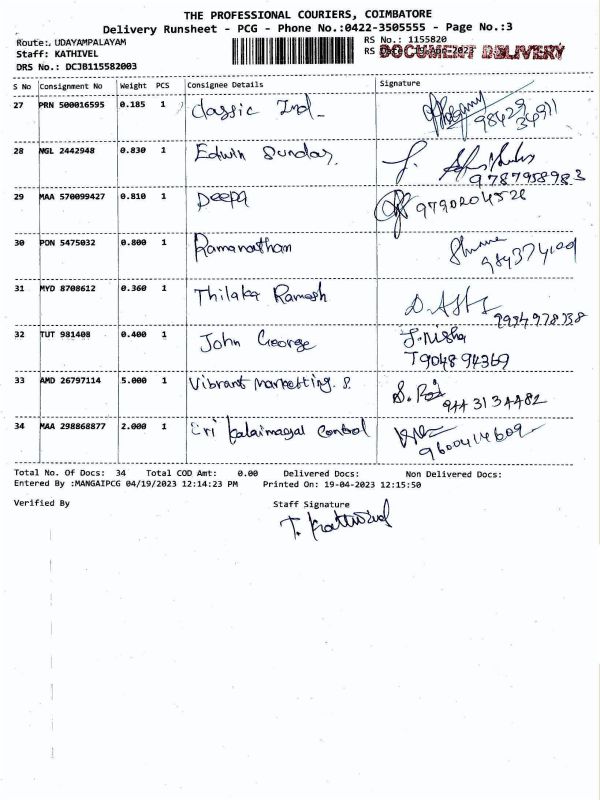 THE PROFESSIONAL COURIERS, COIMBATORE
Delivery Runsheet - PCG - Phone No.:0422-3505555 - Page No.:3
Route:. UDAYAMPALAYAM RS No.: 1155820
Staff: KATHIVEL RS Date: 19-Apr-2023 DOCUMENT DELIVERY
DRS No.: DCJB115582003
S No Consignment No Weight PCS Consignee Details Signature
27 PRN 500016595 0.185 1 Classic Ind. 98429 34911
28 NGL 2442948 0.830 1 Edwin Sunday. 9787958983
29 MAA 570099427 0.810 1 Deepa 9790204528
30 PON 5475032 0.800 1 Ramanathan
31 MYD 8708612 0.360 1 Thilaka Ramesh
32 TUT 981408 0.400 1 John George J. Nisha
T9048 94369
33 AMD 26797114 5.000 1 Vibrant Marketting. S.
9443134482
34 MAA 298868877 2.000 1 Sri Kalaimagal Control
9600414609
Total No. Of Docs: 34 Total COD Amt: 0.00 Delivered Docs: Non Delivered Docs:
Entered By :MANGAIPCG 04/19/2023 12:14:23 PM Printed On: 19-04-2023 12:15:50
Verified By Staff Signature